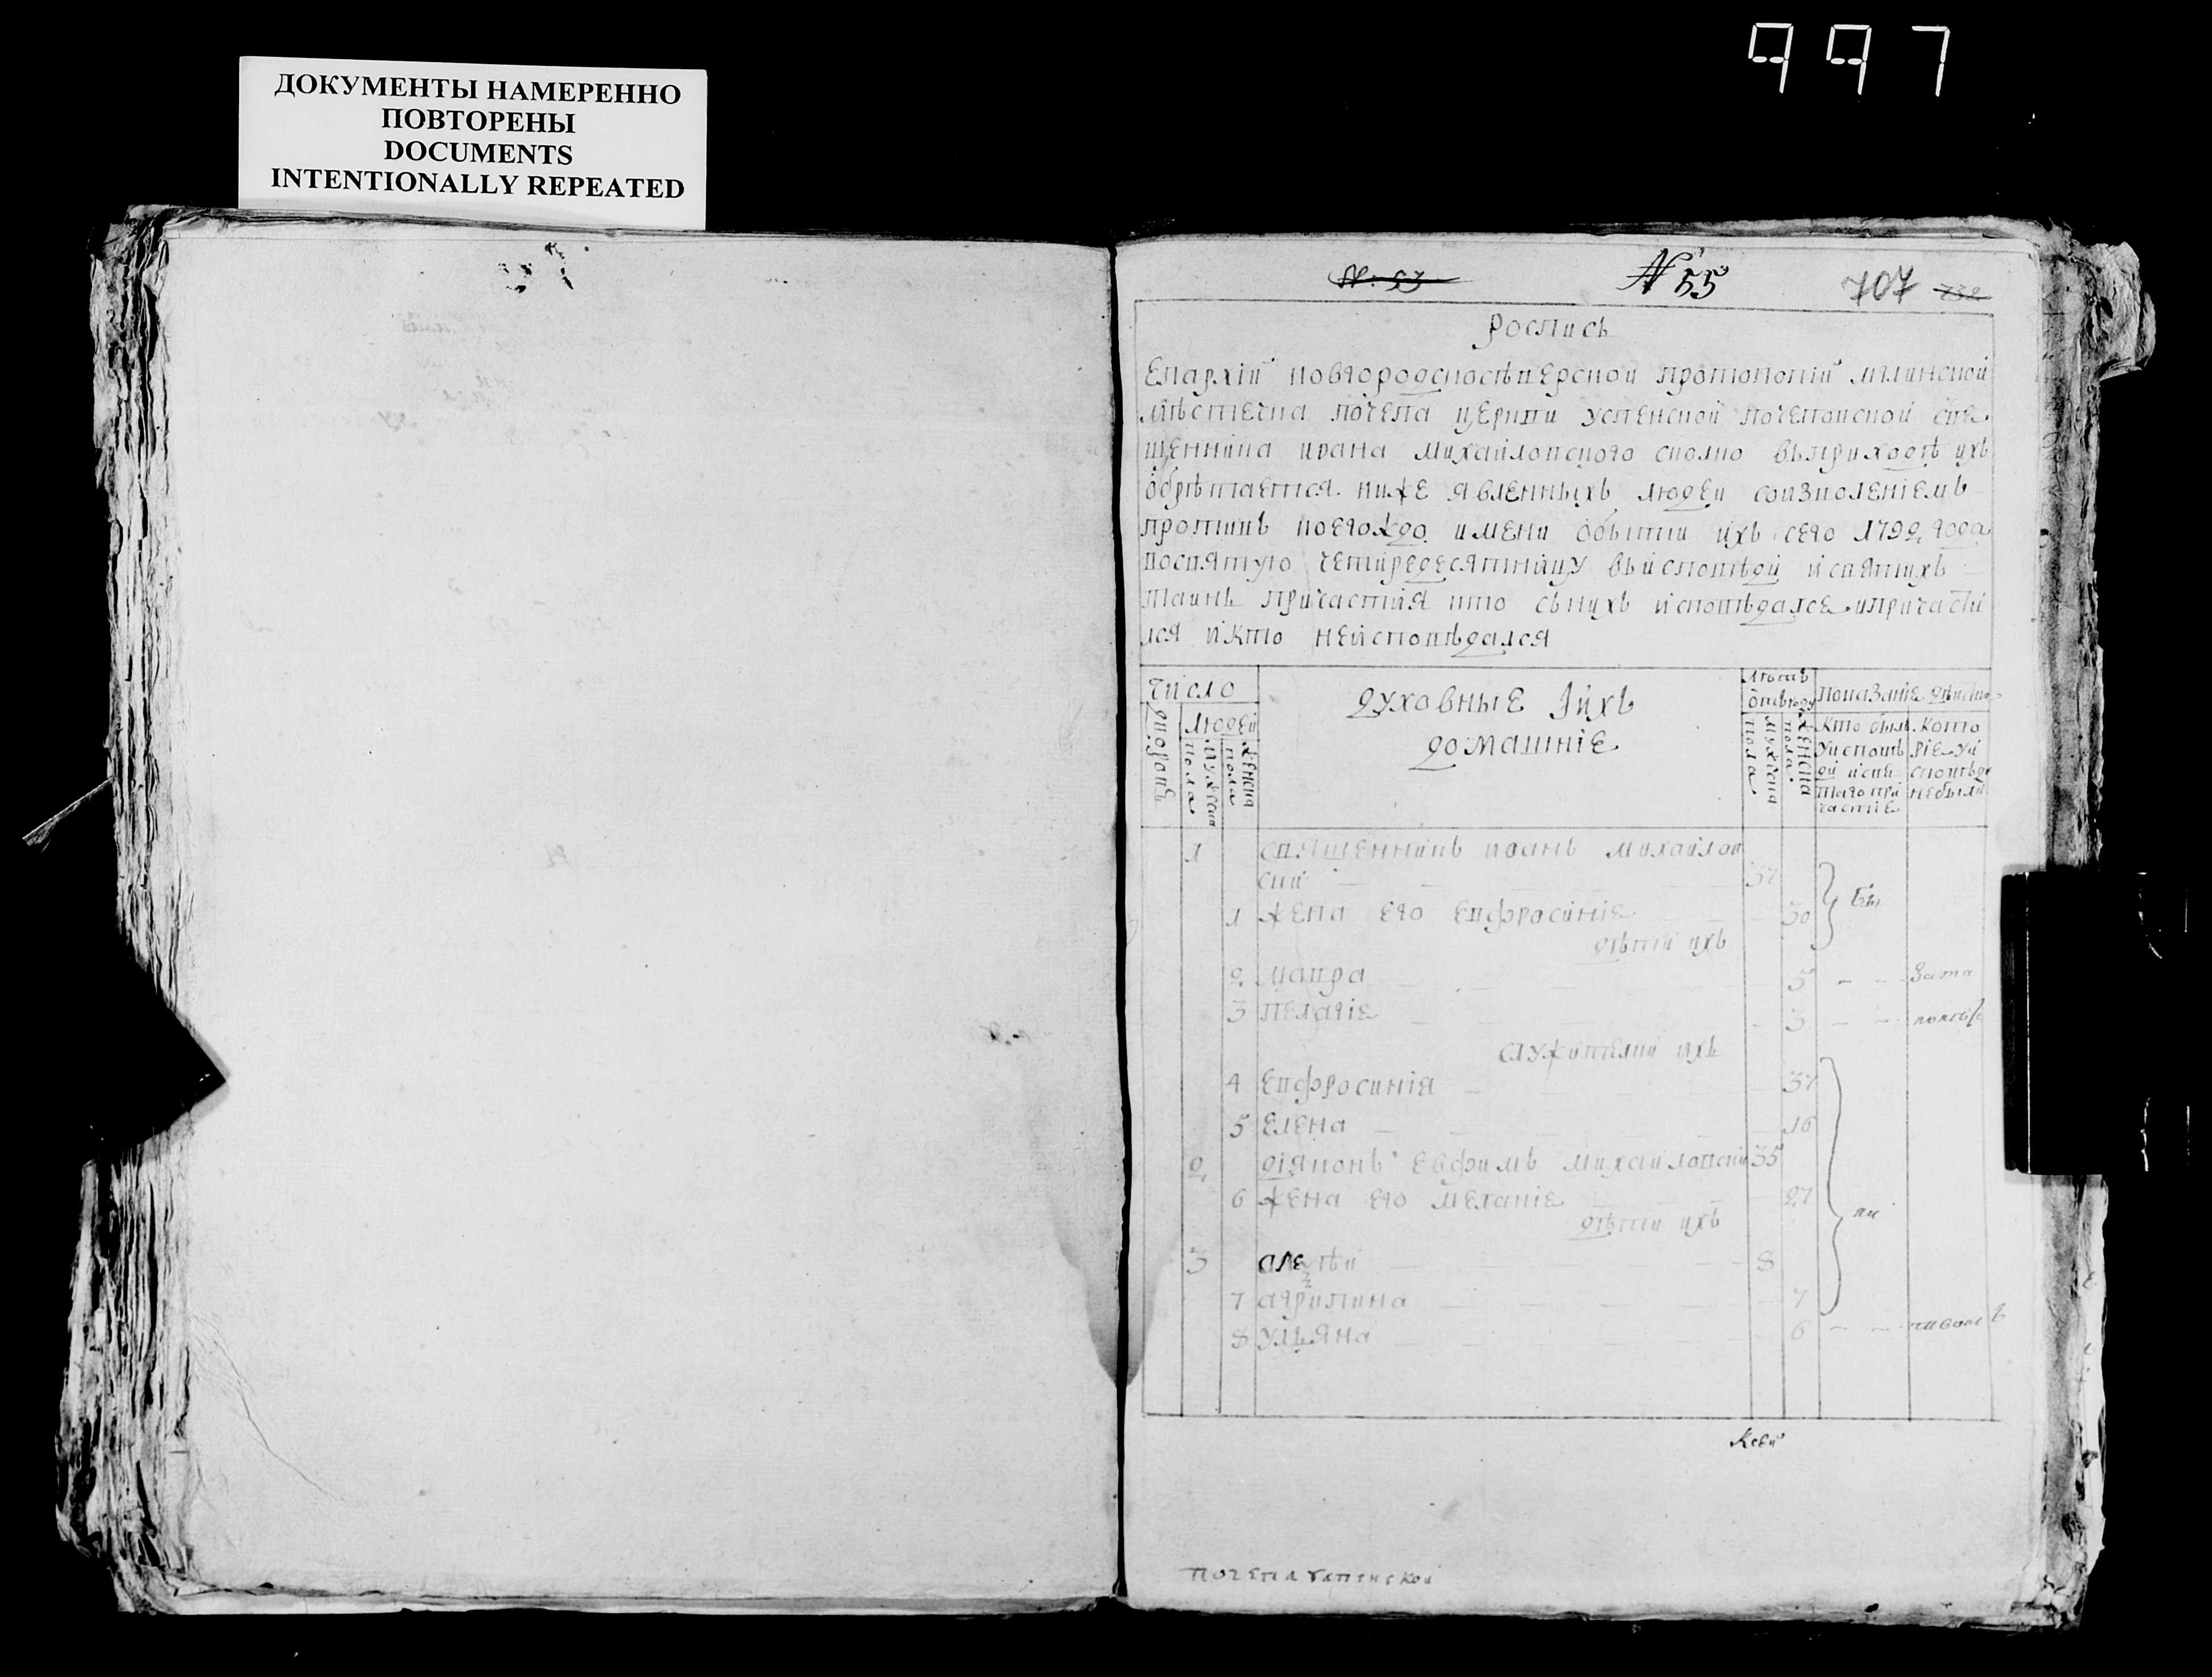 997
ДОКУМЕНТЫ НАМЕРЕННО
ПОВТОРЕНЫ
DOCUMENTS
INTENTIONALLY REPEATED
N: 53 N 55 707 732
Роспись
Епархіи новгородскосѣверской протопопіи мглинской
мѣстечка почепа церкви успенской почепской свя
щенника ивана михайловского сколко вьприходѣ ихъ
обрѣтается ниже явленныхъ людеи соизволеніемъ
противь коегождо имени о бытіи ихъ сего 1792 года
посвятую четиредесятницу вьисповѣди и святихъ
таинъ причастія кто сьнихъ исповѣдался и причасти
лся и кто неисповѣдался
число
дворовъ
людей
мужеска пола
женска пола
духовные і ихъ
домашніе
лѣта
отвроду
мужеска пола
женска пола
показаніе дѣйства
кто былъ
уисповѣ
ди и свя
таго при
частіе
кото
ріе уи
сповѣди
небыли
1 священникъ иоанъ михайлов
скии 37
1 жена его евфросиніе 30 бы
дѣти ихъ
2 мавра 5 зама
3 пелагіе 3 лолѣт
служители ихъ
4 евфросинія 37
5 елена 16
2 діяконъ евфимъ михайловскии 35
6 жена его меланіе 27
дѣти ихъ ли
3 алеѯѣи 8
7 агрипина 7
8 ульяна 6
почепа успенской